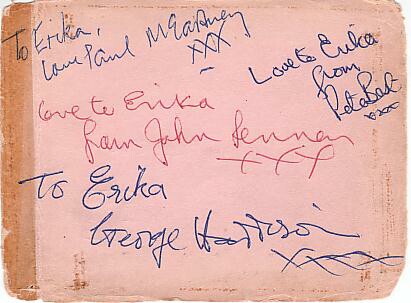 To Erika,
love Paul McCartney
XXX
Love to Erika
from
Pete Best
xxxx
love to Erika
from John Lennon
XXX
To Erika
George Harrison
XXXX